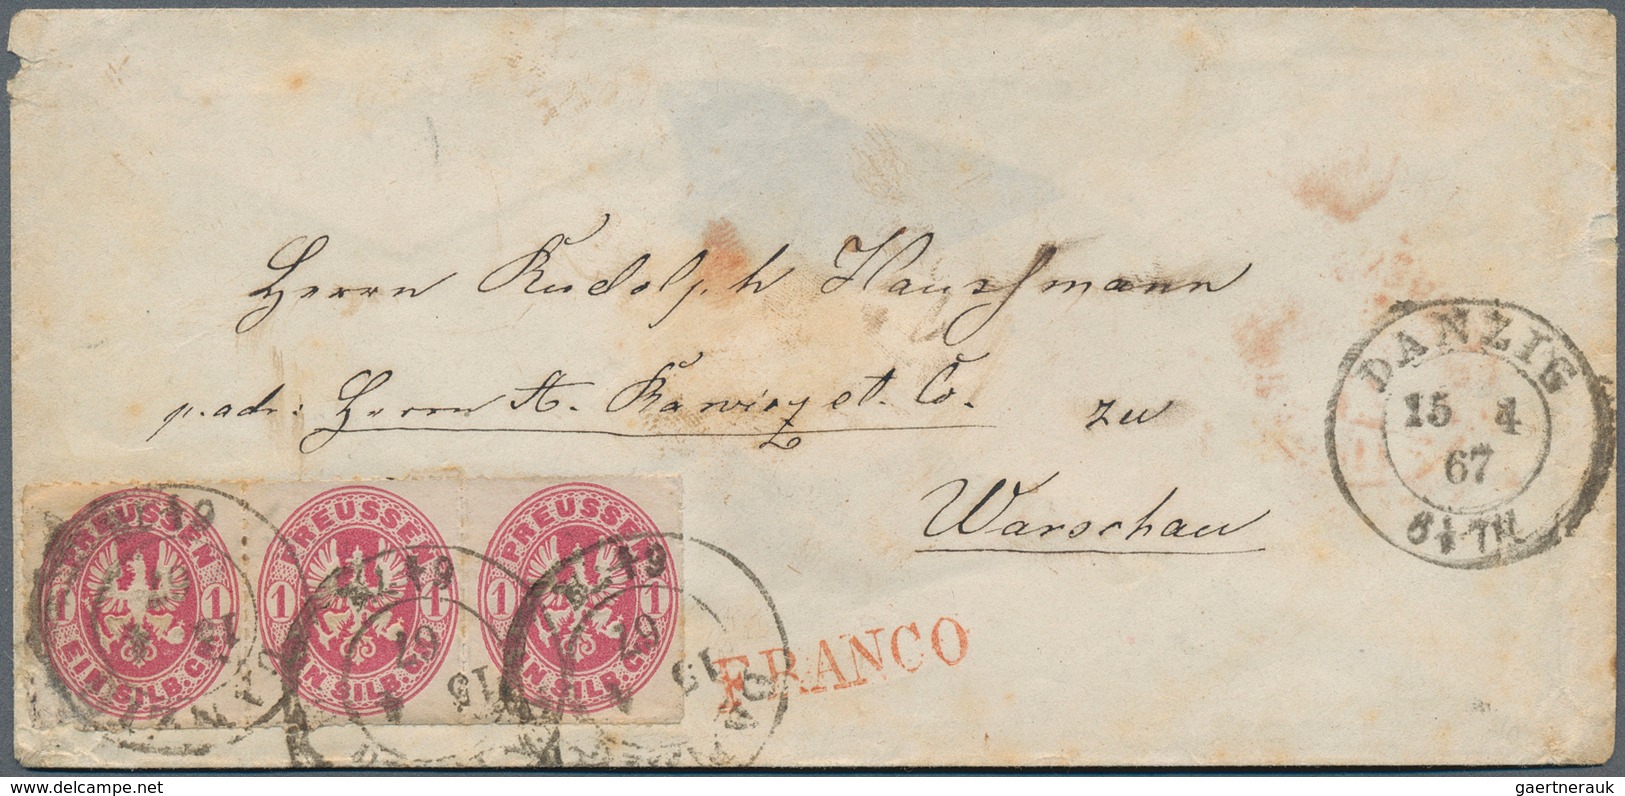 Herrn Rudolph Hausmann
p. adr: Herrn A. Rawicz et. Co. zu
Warschau
DANZIG
15 4
67
PREUSSEN
1 1
EIN SILB.GR.
PREUSSEN
1 1
EIN SILB.GR.
PREUSSEN
1 1
EIN SILB.GR.
67
15 4
67
15 4
FRANCO
gaertnerauk